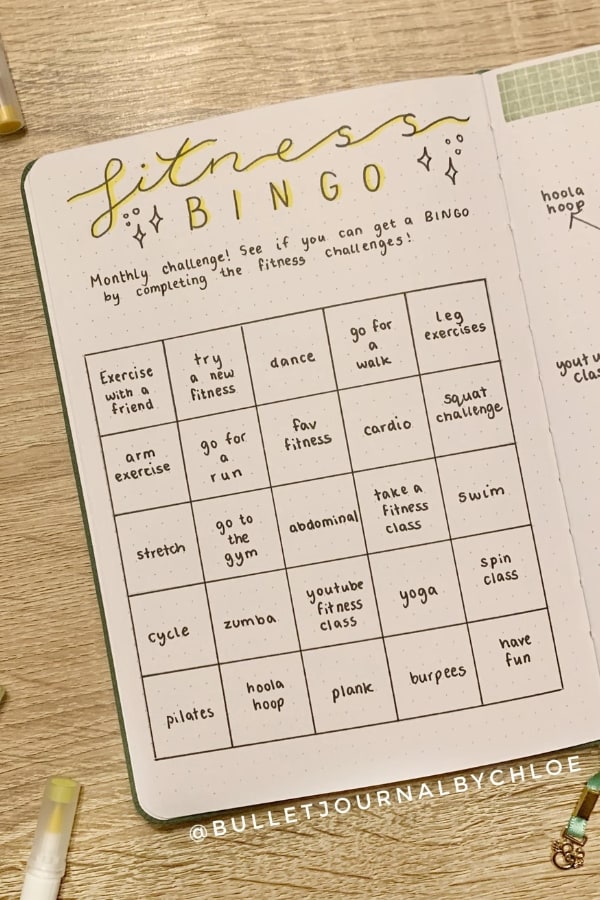 fitness
BINGO
Monthly challenge! See if you can get a BINGO
by completing the fitness challenges!
Exercise
with a
friend
try
a new
fitness
dance
go for
a
walk
Leg
exercises
arm
exercise
go for
a
run
fav
fitness
cardio
squat
challenge
stretch
go to
the
gym
abdominal
take a
fitness
class
swim
cycle
zumba
youtube
fitness
class
yoga
spin
class
pilates
hoola
hoop
plank
burpees
have
fun
hoola
hoop
@BULLETJOURNALBYCHLOE